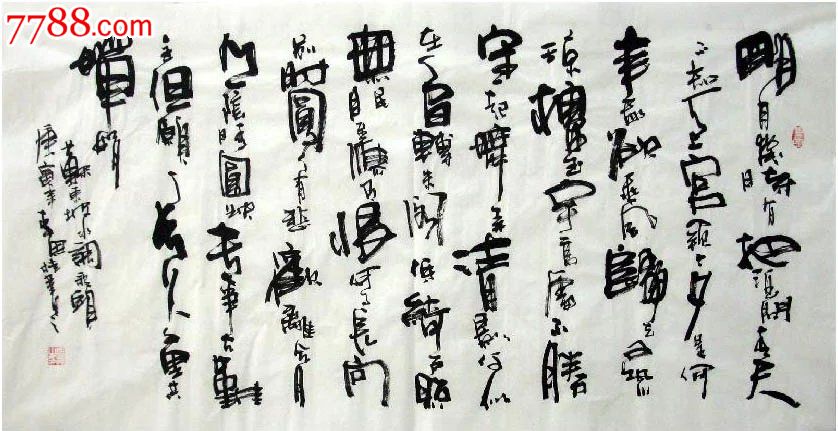 7788.com
中国收藏热线
明月幾時有把酒問青天
不知天上宮闕今夕是何
年我欲乘風歸去又恐
瓊樓玉宇高處不勝
寒起舞弄清影何似
在人間轉朱閣低綺戶照
無眠不應有恨何事長向
別時圓人有悲歡離合月
陰晴圓缺此事古難
全但願人長久千里共
嬋娟
庚寅年